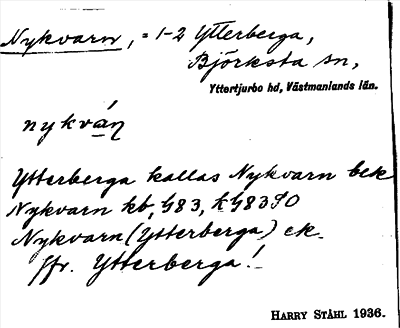 Nykvarn, = 1-2 Ytterberga,
Björksta sn,
Yttertjurbo hd, Västmanlands län.
nykván
Ytterberga kallas Nykvarn bek
Nykvarn kb, G83, kG83SO
Nykvarn (Ytterberga) ek.
Jfr. Ytterberga!
HARRY STÅHL 1936.